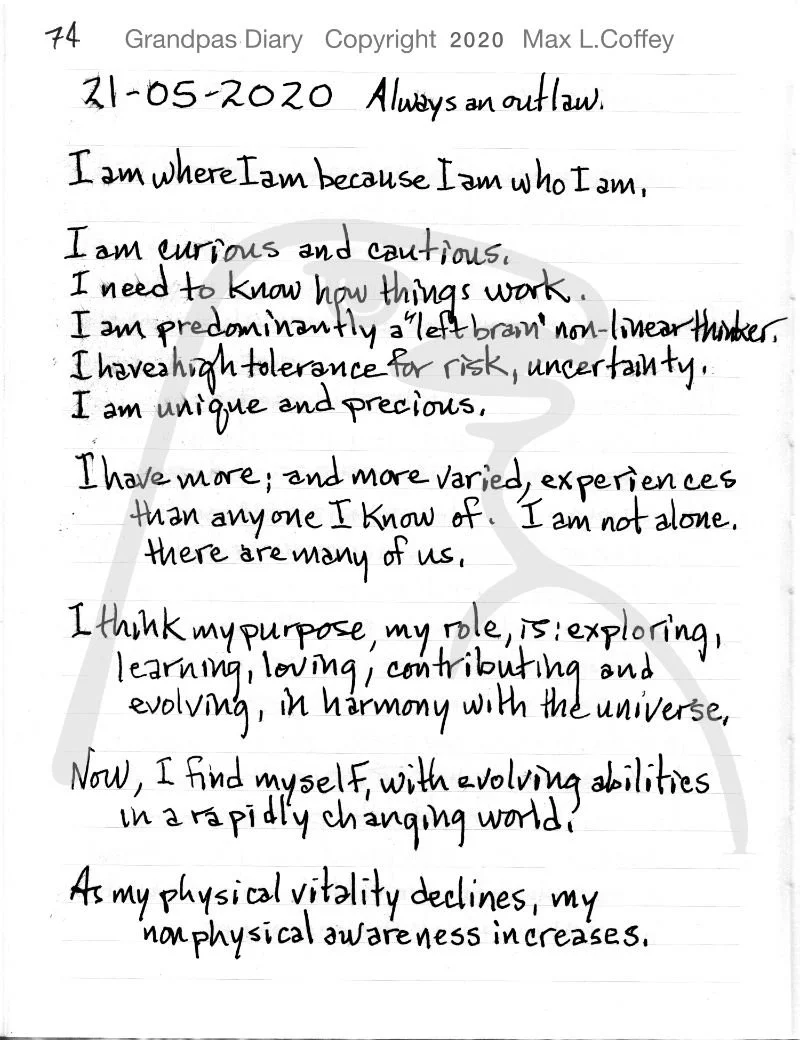 74 Grandpas Diary Copyright 2020 Max L.Coffey
21-05-2020 Always an outlaw.
I am where I am because I am who I am.
I am curious and cautious.
I need to know how things work.
I am predominantly a "left brain" non-linear thinker.
I have a high tolerance for risk, uncertainty.
I am unique and precious.
I have more; and more varied, experiences
than anyone I know of. I am not alone.
there are many of us.
I think my purpose, my role, is: exploring,
learning, loving, contributing and
evolving, in harmony with the universe.
Now, I find myself, with evolving abilities
in a rapidly changing world.
As my physical vitality declines, my
nonphysical awareness increases.